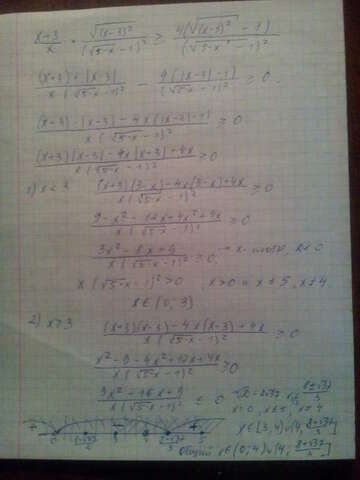 (x+3)/x · √((x-3)²)/(√(5-x) - 1)² ≥ 4(√((x-3)²) - 1)/(√(5-x) - 1)²
(x+3)·|x-3|/(x(√(5-x) - 1)²) - 4(|x-3|-1)/(√(5-x) - 1)² ≥ 0.
(x+3)·|x-3| - 4x(|x-3|-1)/(x·(√(5-x) - 1)²) ≥ 0
(x+3)|x-3| - 4x|x-3| + 4x/(x(√(5-x) - 1)²) ≥ 0
1) x < 3 (x+3)(3-x) - 4x(3-x) + 4x/(x·(√(5-x) - 1)²) ≥ 0
9 - x² - 12x + 4x² + 4x/(x(√(5-x) - 1)²) ≥ 0
3x² - 8x + 9/(x(√(5-x) - 1)²) ≥ 0.
x(√(5-x) - 1)² > 0 x > 0 x ≤ 5, x ≠ 4
x ∈ (0; 3)
2) x ≥ 3 (x+3)(x-3) - 4x(x-3) + 4x/(x·(√(5-x) - 1)²) ≥ 0
x² - 9 - 4x² + 12x + 4x/(x(√(5-x) - 1)²) ≥ 0
3x² - 16x + 9/(x(√(5-x) - 1)²) ≤ 0
x ≠ 0, x ≤ 5, x ≠ 4
x ∈ [3; 4) ∪ (4; (8+√37)/3]
Общий x ∈ (0; 4) ∪ (4; (8+√37)/3]